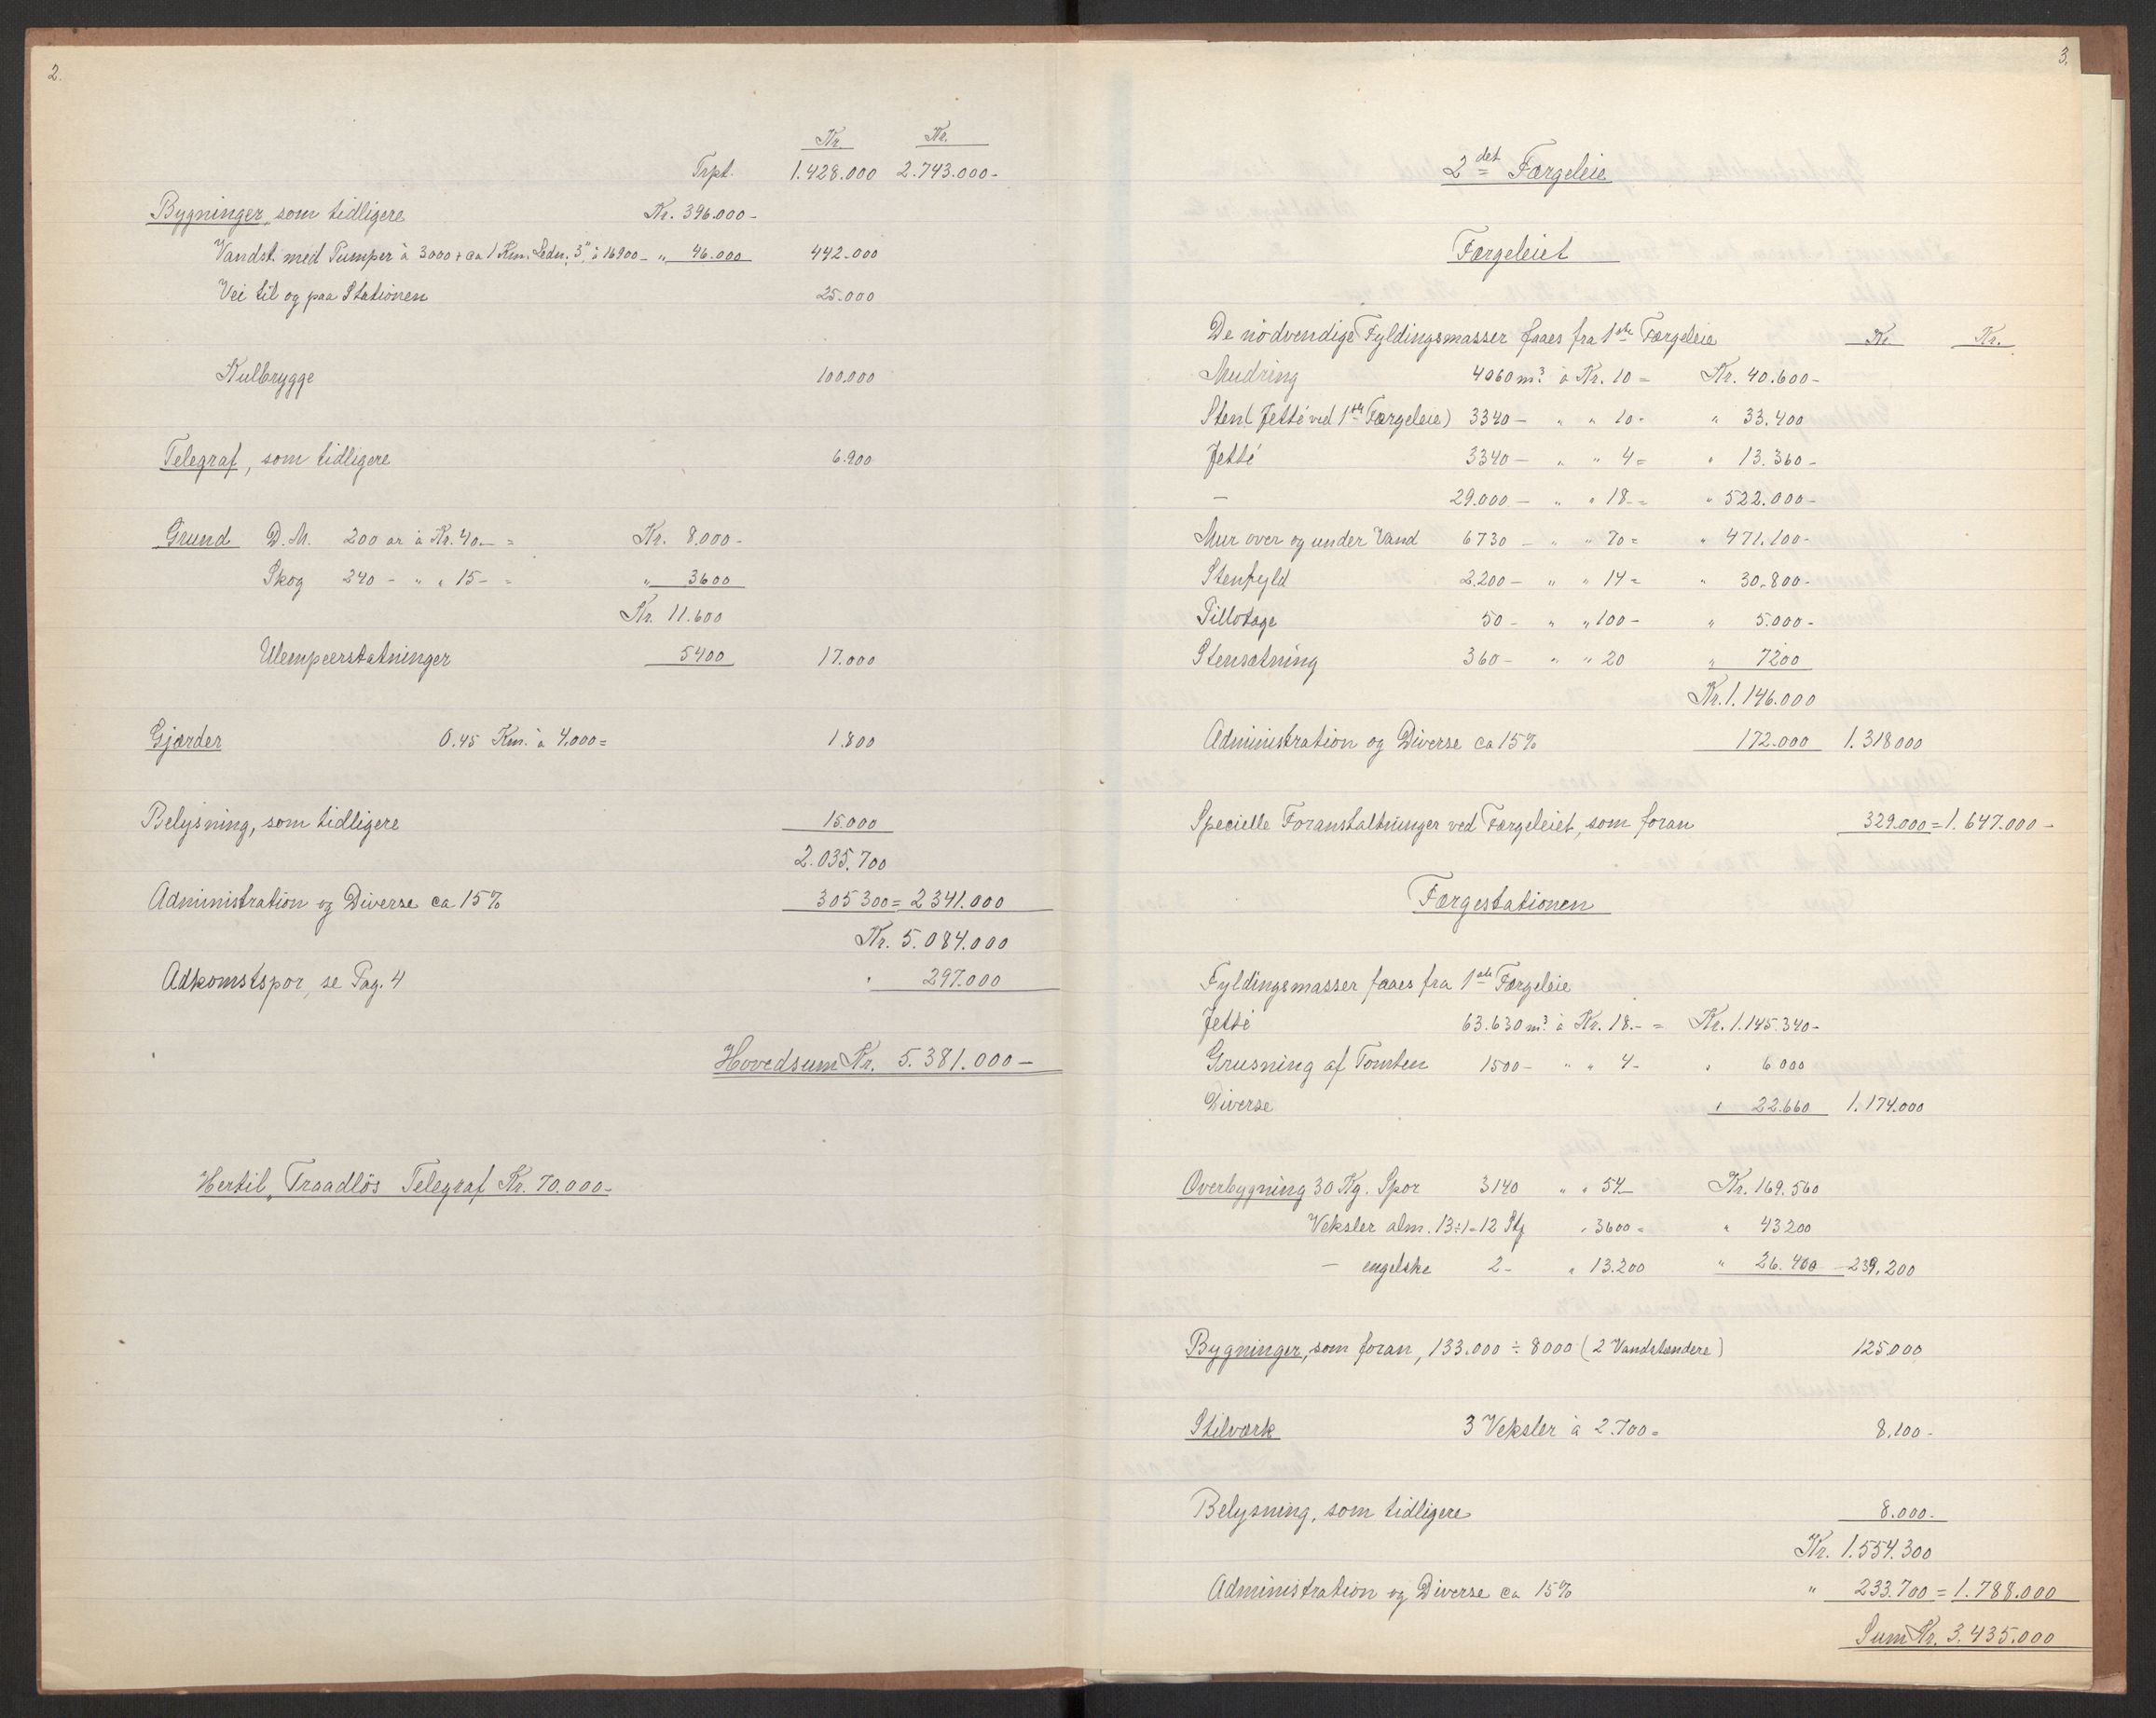 2.
Kr. Kr.
Trpt. 1.428.000 2.743.000-
Bygninger, som tidligere Kr. 396.000-
Vandst. med Pumper à 3000 + ca 1 Km. Ledn. 3" à 16900- " 46.000 442.000
Vei til og paa Stationen 25.000
Kulbrygge 100.000
Telegraf, som tidligere 6.900
Grund D. M. 200 ar à Kr. 40.- = Kr. 8.000-
Skog 240 - " " 15- = " 3600
Kr. 11.600
Ulempeerstatninger 5400 17.000
Gjærder 0.45 Km. à 4.000= 1.800
Belysning, som tidligere 15.000
2.035.700
Administration og Diverse ca 15% 305 300 = 2341.000
Kr. 5.084.000
Adkomstspor, se Pag. 4 " 297.000
Hovedsum Kr. 5.381.000-
Hertil, Traadlös Telegraf Kr. 70.000-
3.
2det Færgeleie
Færgeleiet
De nödvendige Fyldingsmasser faaes fra 1ste Færgeleie Kr. Kr.
Mudring 4060 m³ à Kr. 10 = Kr. 40.600-
Sten (Jetté ved 1ste Færgeleie) 3340 - " " 10- " 33.400
Jetté 3340 - " " 4 = " 13.360-
- 29.000 - " " 18- = " 522.000-
Mur over og under Vand 6730 - " " 70 = " 471.100-
Stenfyld 2.200 - " " 14 = " 30.800-
Pillotage 50 - " " 100 - " 5.000-
Stensætning 360 - " " 20 " 7200
Kr. 1.146.000
Administration og Diverse ca 15% 172.000 1.318000
Specielle Foranstaltninger ved Færgeleiet, som foran 329.000 = 1.647.000-
Færgestationen
Fyldingsmasser faaes fra 1ste Færgeleie
Jetté 63.630 m³ à Kr. 18.- = Kr. 1.145.340-
Grusning af Tomten 1500- " " 4- " 6000
Diverse " 22.660 1.174.000
Overbygning 30 Kg. Spor 3140 " " 54- Kr. 169.560
Veksler alm. 13÷1=12 Stk " 3600 = " 43200
- engelske 2- " 13.200 " 26.400 - 239.200
Bygninger, som foran, 133.000 ÷ 8000 (2 Vandstændere) 125.000
Stilværk 3 Veksler à 2.700= 8.100-
Belysning, som tidligere 8.000-
Kr. 1.554.300
Administration og Diverse ca 15% " 233.700 = 1.788.000
Sum Kr. 3.435.000